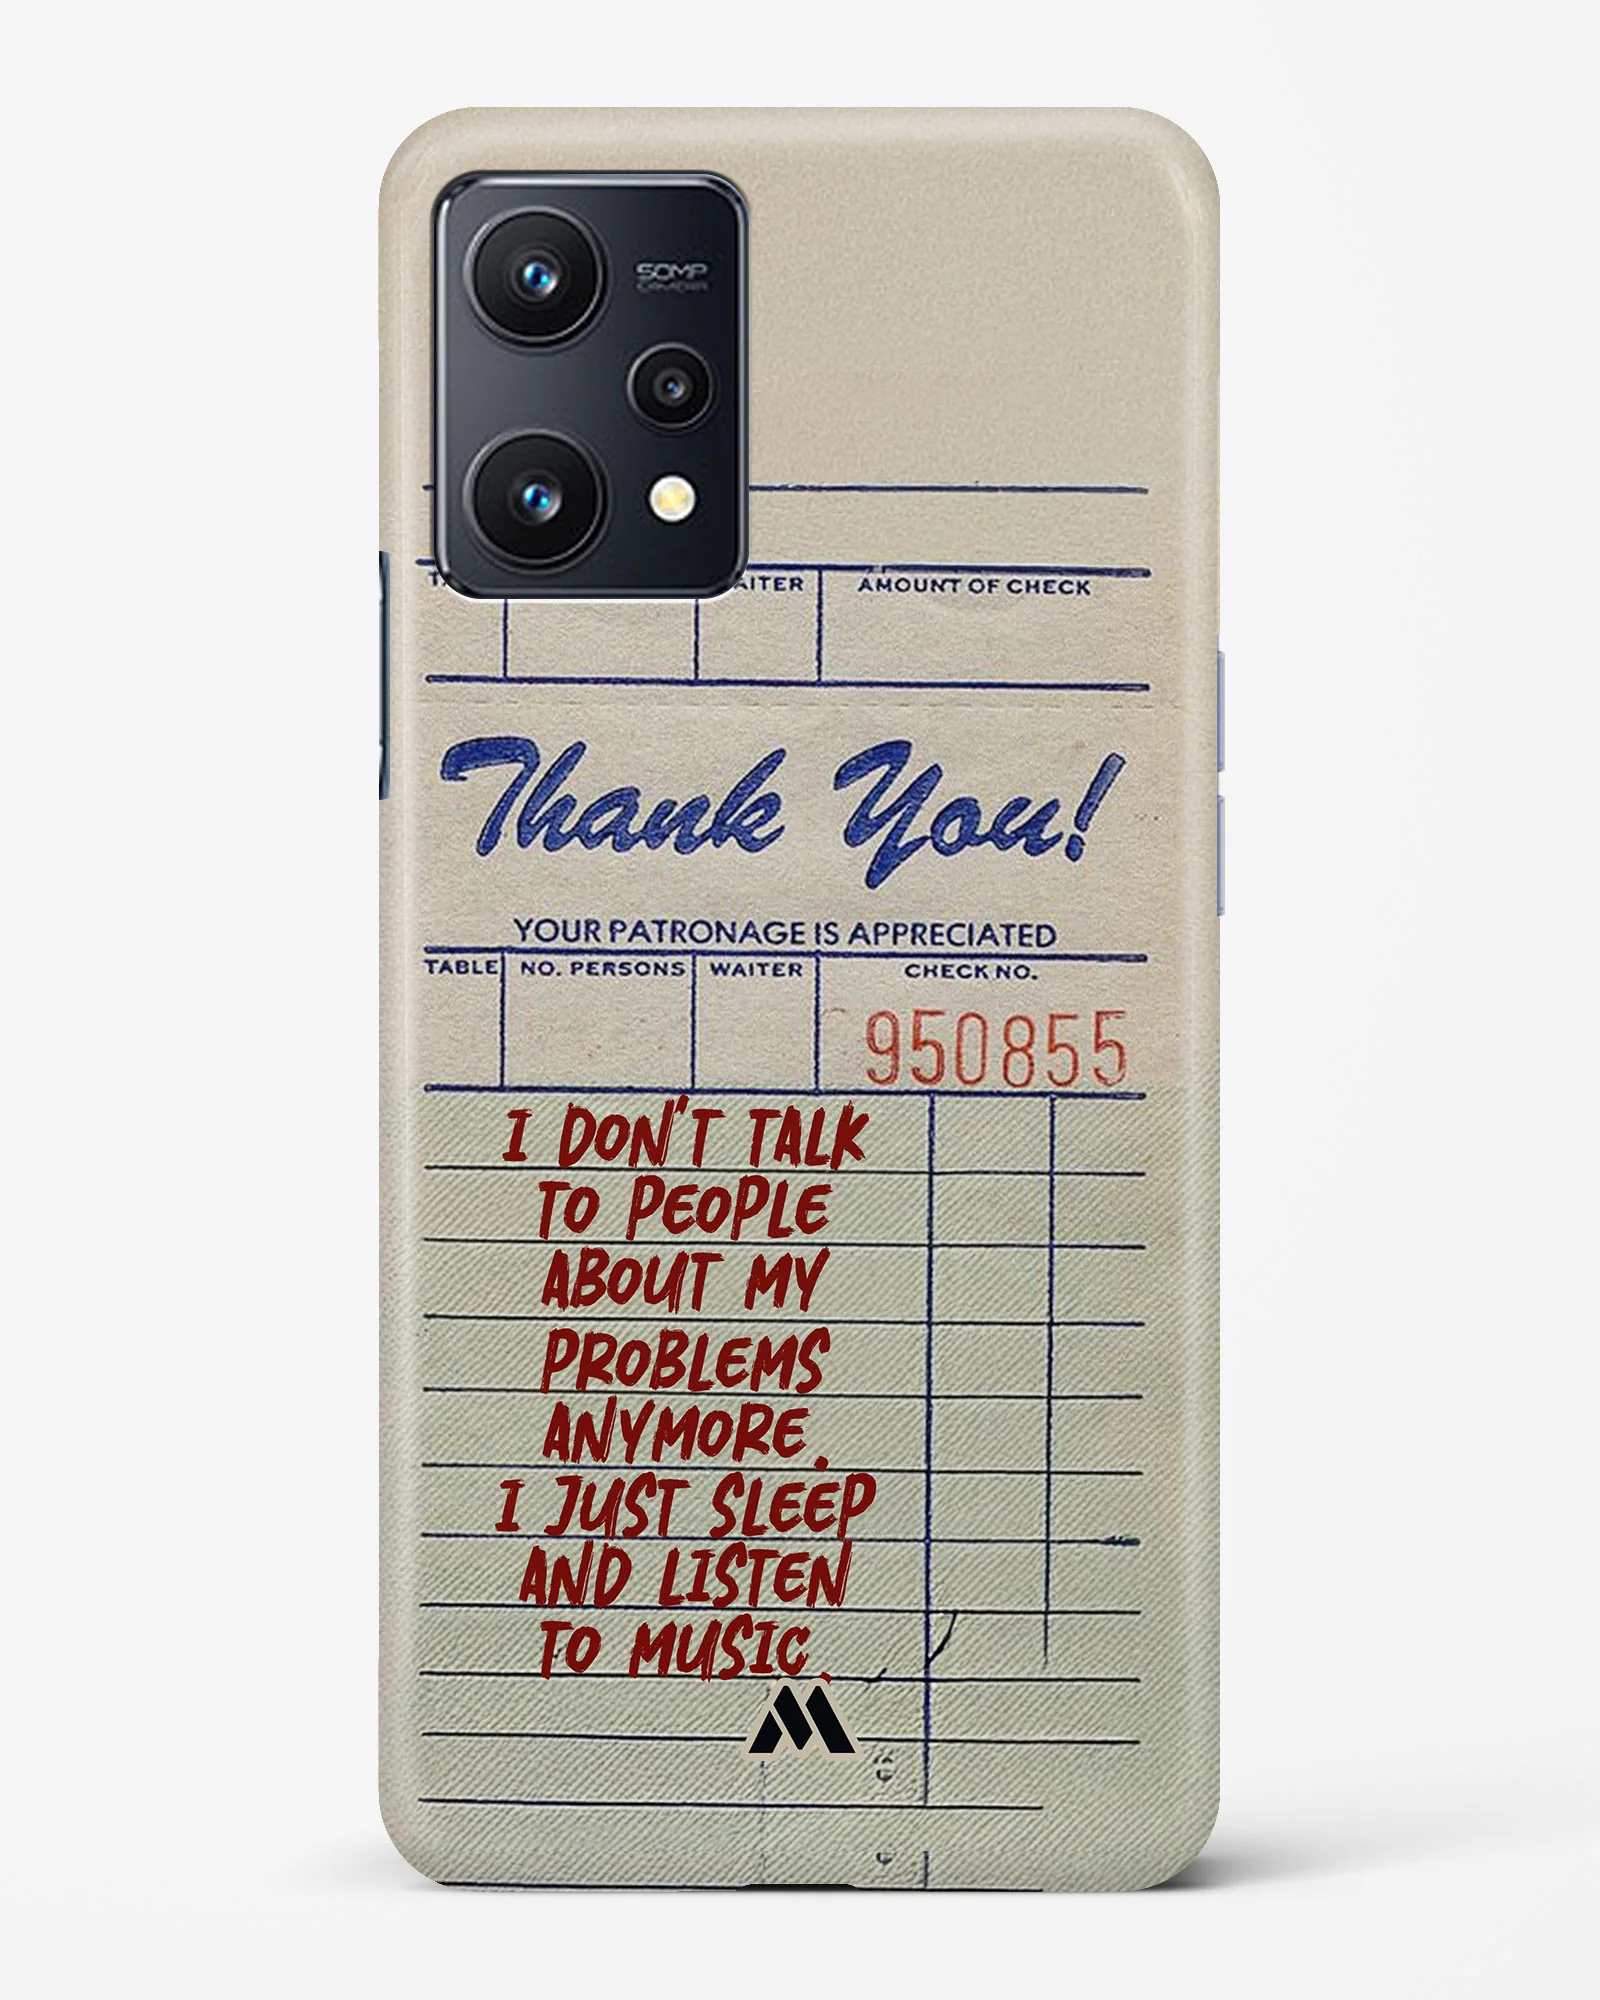 50MP
CAMERA
AITER AMOUNT OF CHECK
Thank You!
YOUR PATRONAGE IS APPRECIATED
TABLE NO. PERSONS WAITER CHECK NO.
950855
I DON'T TALK
TO PEOPLE
ABOUT MY
PROBLEMS
ANYMORE.
I JUST SLEEP
AND LISTEN
TO MUSIC.